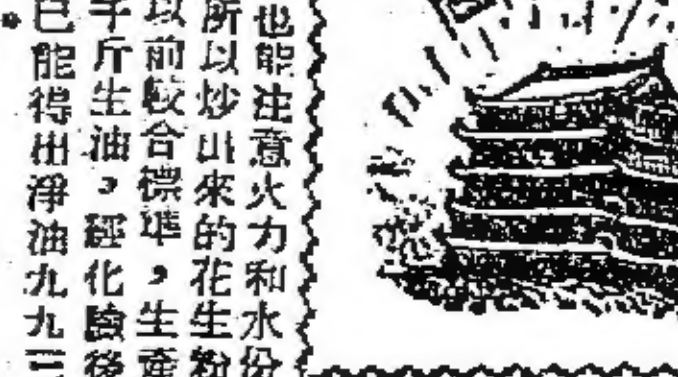 也能注意火力和水份
所以炒出來的花生粉
以前較合標準，生產
千斤生油，經化驗後
已能得出淨油九九三
。